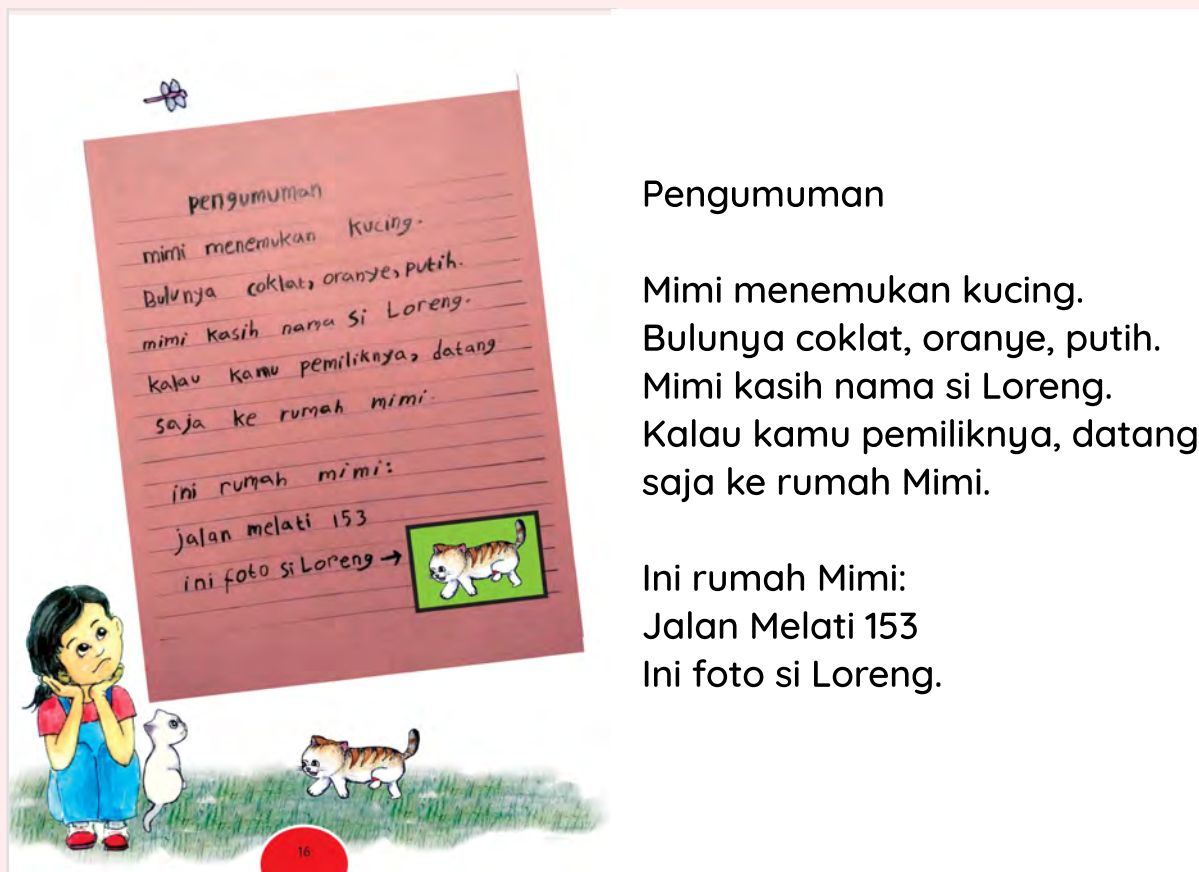 pengumuman
mimi menemukan kucing.
Bulunya coklat, oranye, putih.
mimi kasih nama si Loreng.
kalau kamu pemiliknya, datang
saja ke rumah mimi.
ini rumah mimi:
jalan melati 153
ini foto si Loreng →
16
Pengumuman
Mimi menemukan kucing.
Bulunya coklat, oranye, putih.
Mimi kasih nama si Loreng.
Kalau kamu pemiliknya, datang
saja ke rumah Mimi.
Ini rumah Mimi:
Jalan Melati 153
Ini foto si Loreng.